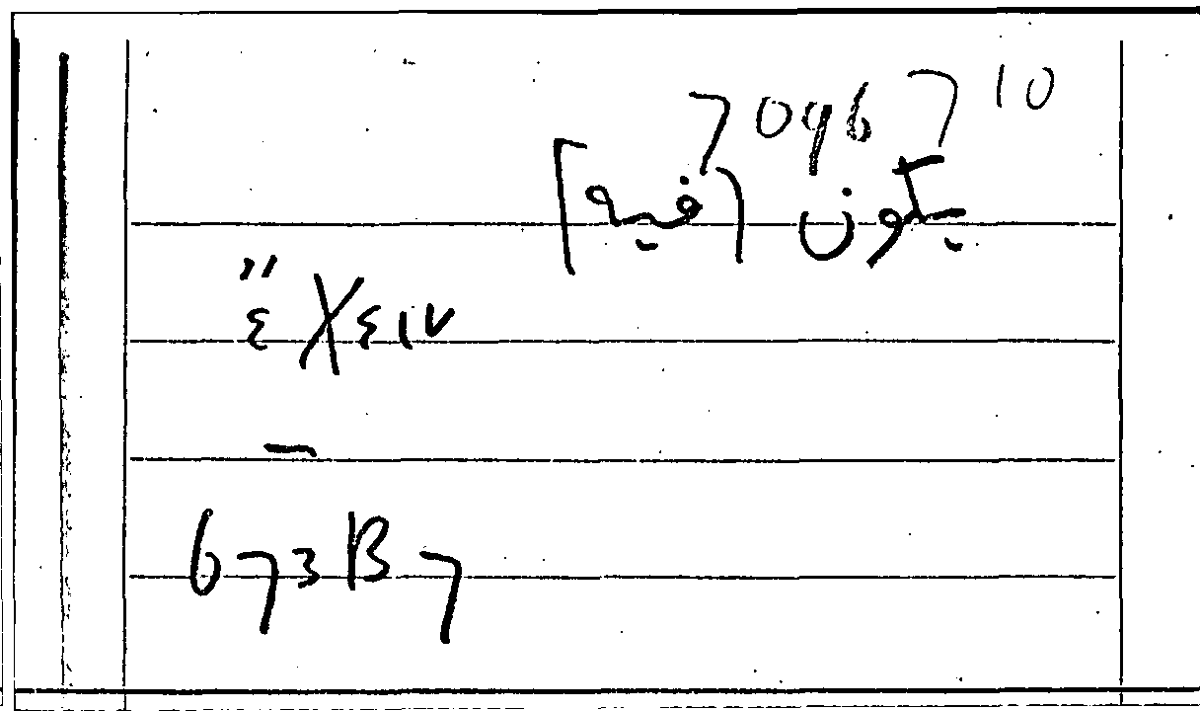 7096710
يكون (فيه]
"٤X٤١٧
-
673B7